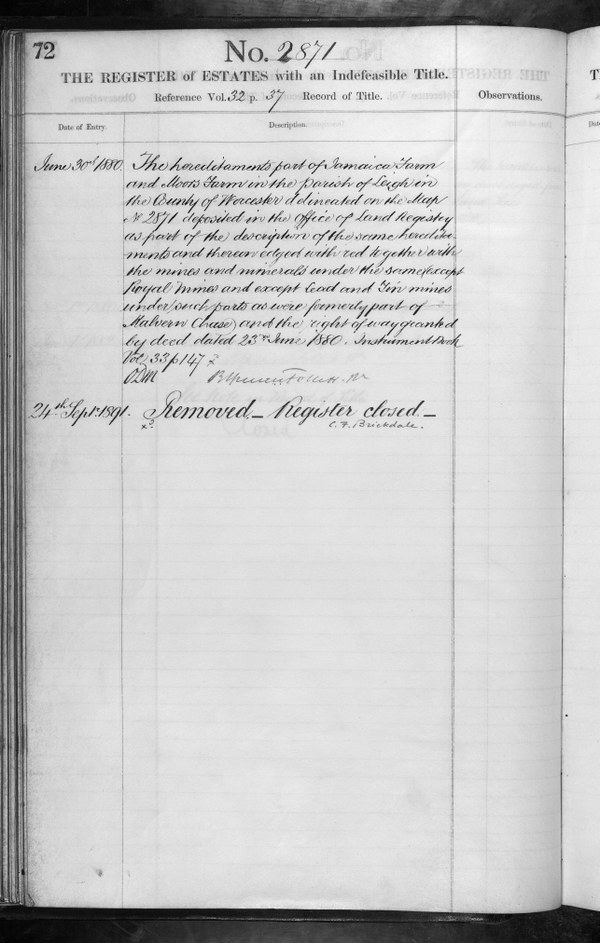 72
No. 2871
THE REGISTER of ESTATES with an Indefeasible Title.
Reference Vol. 32 p. 37 Record of Title.
Observations.
Date of Entry.
Description.
June 30th 1880.
The hereditaments part of Jamaica Farm
and Moors Farm in the Parish of Leigh in
the County of Worcester delineated on the Map
No 2871 deposited in the office of Land Registry
as part of the description of the same heredita-
ments and thereon edged with red together with
the mines and minerals under the same (except
Royal Mines and except lead and Tin mines
under such parts as were formerly part of
Malvern Chase) and the right of way granted
by deed dated 23rd June 1880. Instrument Book
Vol. 33 p 147
24th Sept. 1891.
Removed – Register closed –
C. F. Brickdale.